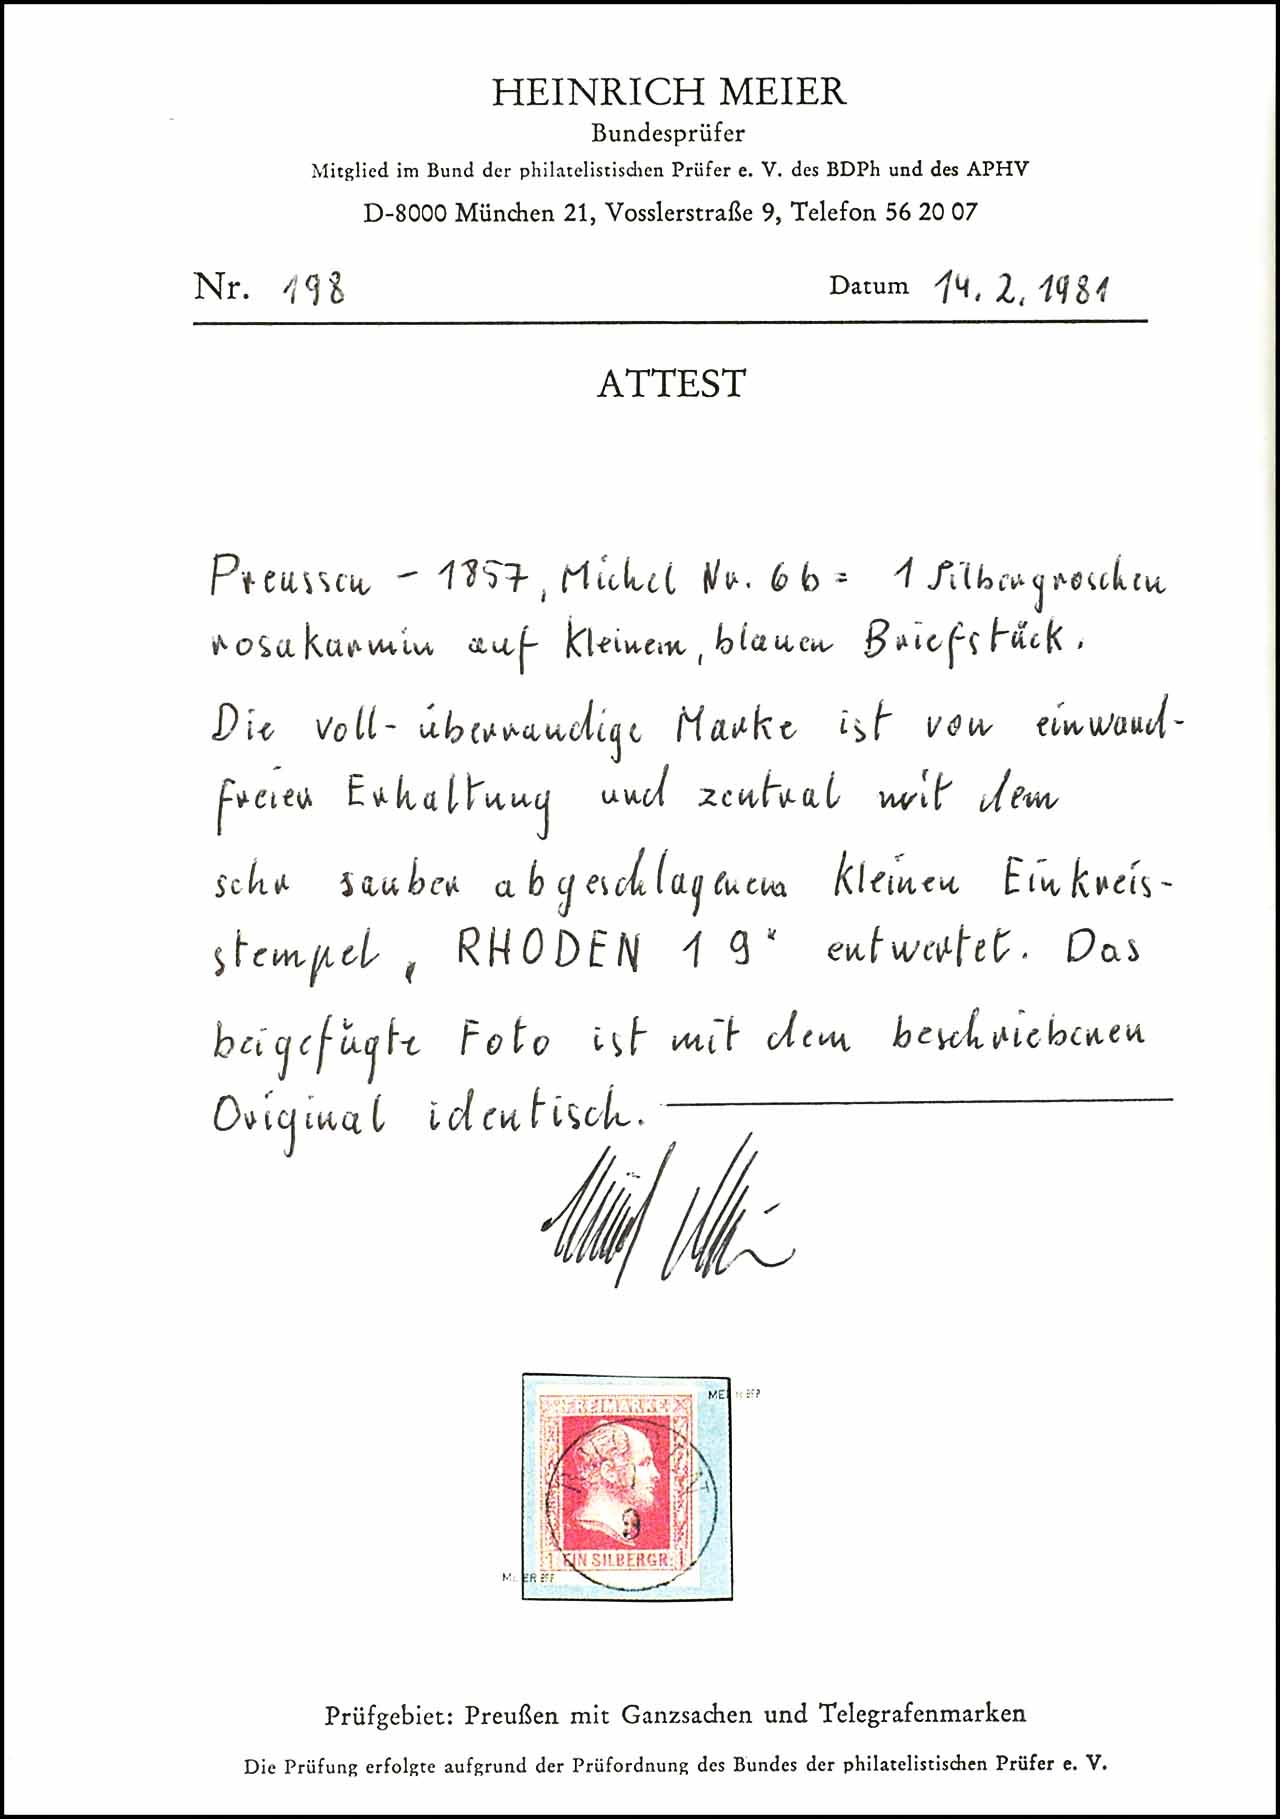 HEINRICH MEIER
Bundesprüfer
Mitglied im Bund der philatelistischen Prüfer e. V. des BDPh und des APHV
D-8000 München 21, Vosslerstraße 9, Telefon 56 20 07
Nr. 198 Datum 14. 2. 1981
ATTEST
Preussen – 1857, Michel Nr. 6b = 1 Silbergroschen
rosakarmin auf kleinem, blauen Briefstück.
Die voll-überrandige Marke ist von einwand-
freier Erhaltung und zentral mit dem
sehr sauber abgeschlagenem kleinen Einkreis-
stempel „RHODEN 1 9" entwertet. Das
beigefügte Foto ist mit dem beschriebenen
Original identisch.
FREIMARKE
9
1 EIN SILBERGR. 1
MEIER BPP
Prüfgebiet: Preußen mit Ganzsachen und Telegrafenmarken
Die Prüfung erfolgte aufgrund der Prüfordnung des Bundes der philatelistischen Prüfer e. V.